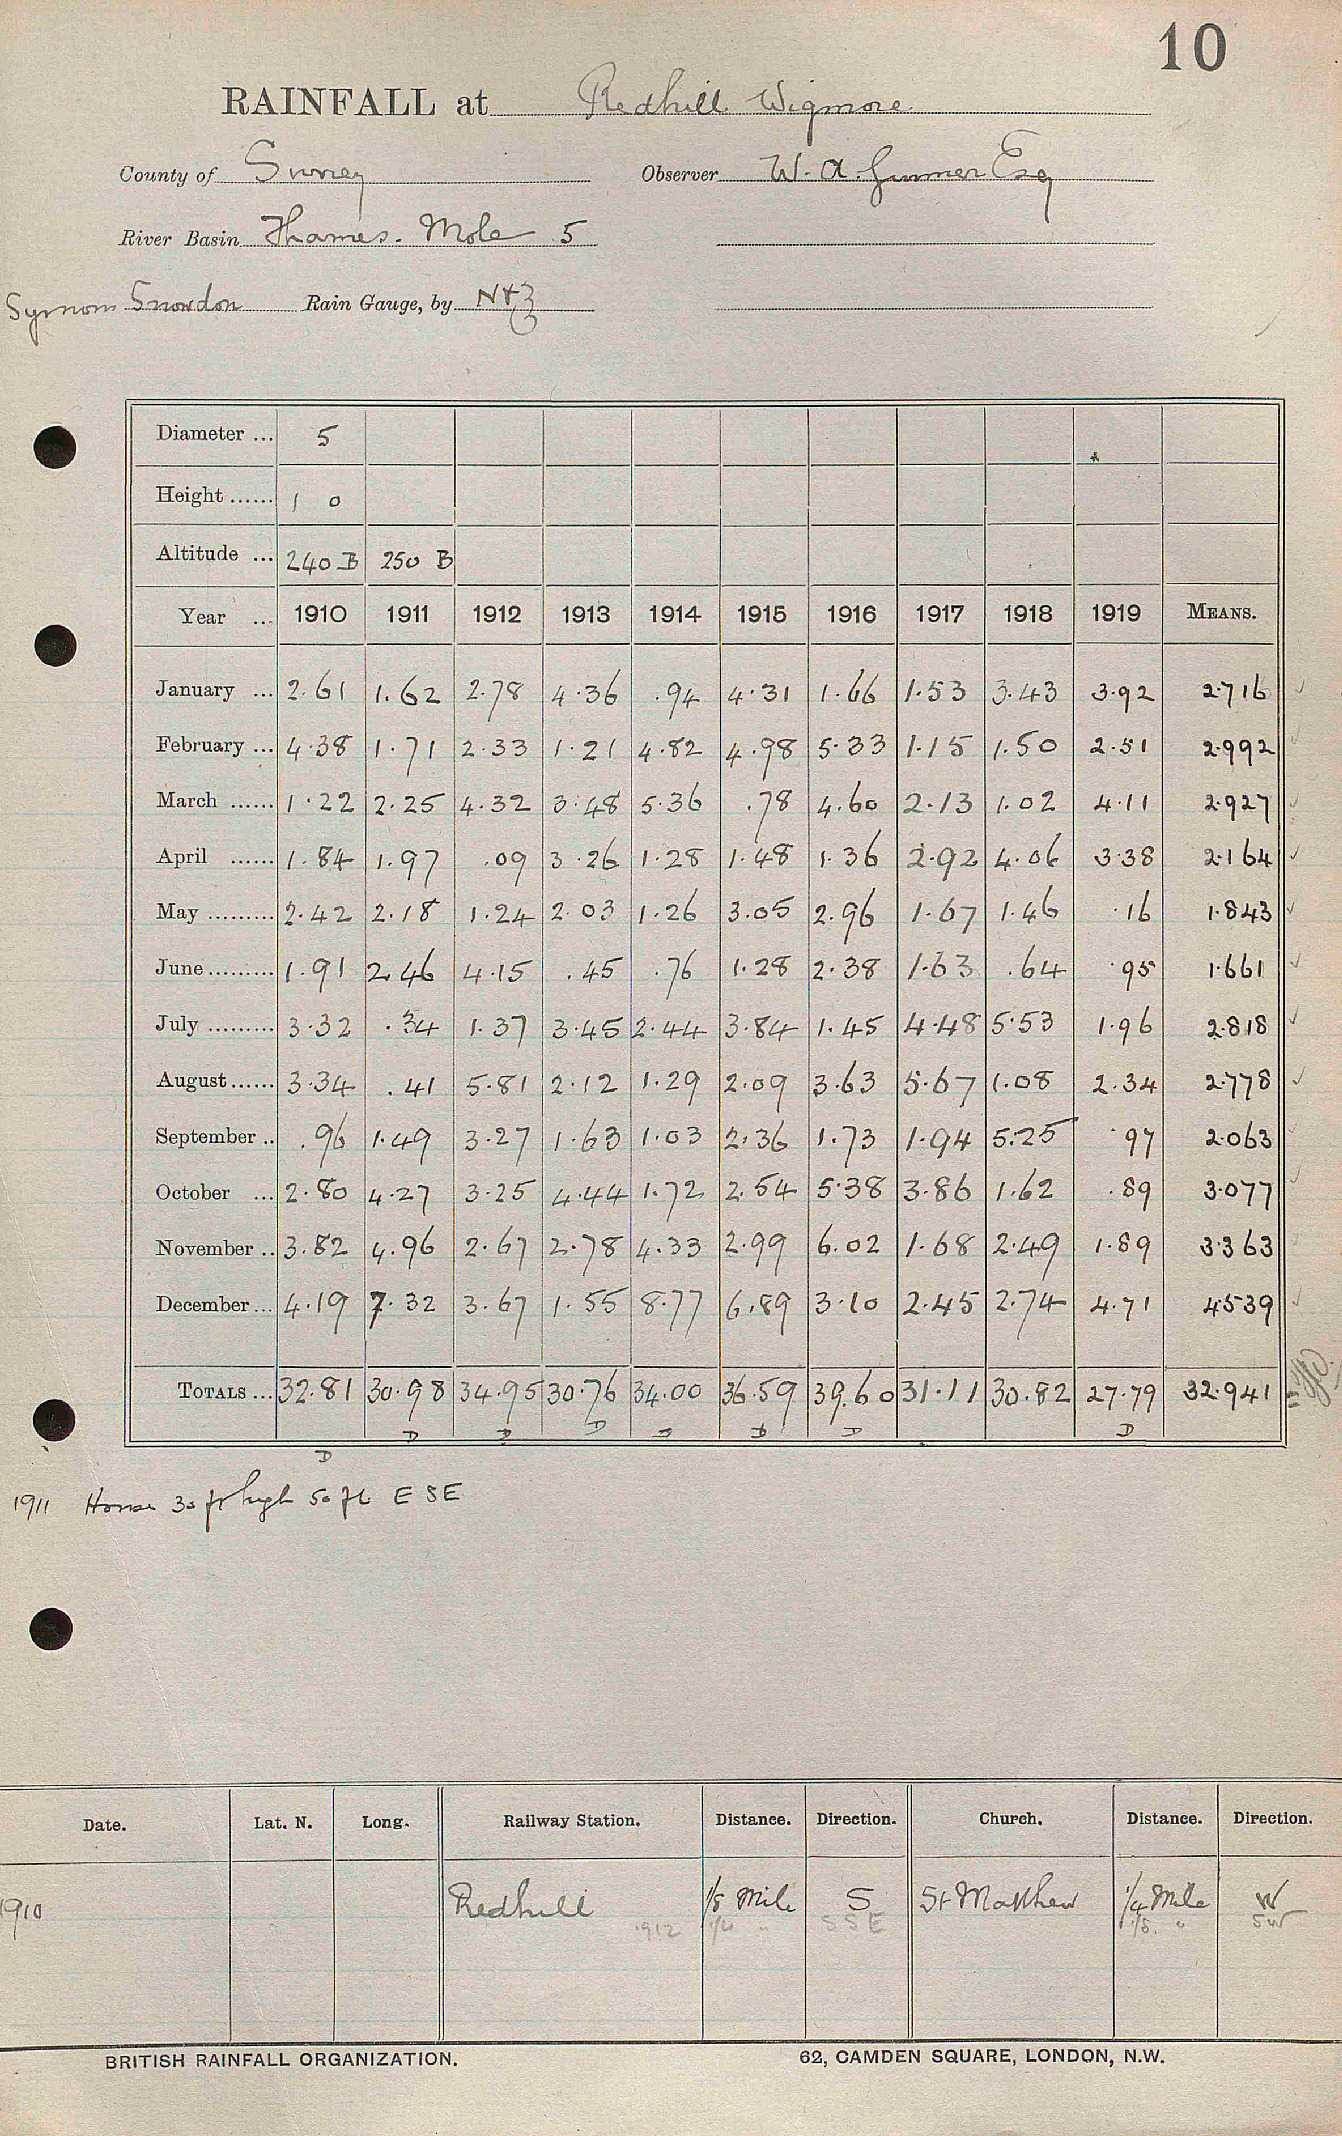 10
RAINFALL at Redhill Wigmore
County of Surrey Observer W. A. Esq
River Basin Thames. Mole 5
Symons Snowdon Rain Gauge, by N & Z
Diameter ... 5
Height ...... 1 0
Altitude ... 240 B 250 B
Year ... 1910 1911 1912 1913 1914 1915 1916 1917 1918 1919 MEANS.
January ... 2.61 1.62 2.78 4.36 .94 4.31 1.66 1.53 3.43 3.92 2.716
February ... 4.38 1.71 2.33 1.21 4.82 4.98 5.33 1.15 1.50 2.51 2.992
March ...... 1.22 2.25 4.32 3.48 5.36 .78 4.60 2.13 1.02 4.11 2.927
April ...... 1.84 1.97 .09 3.26 1.28 1.48 1.36 2.92 4.06 3.38 2.164
May ......... 2.42 2.18 1.24 2.03 1.26 3.05 2.96 1.67 1.46 .16 1.843
June ......... 1.91 2.46 4.15 .45 .76 1.28 2.38 1.63 .64 .95 1.661
July ......... 3.32 .34 1.37 3.45 2.44 3.84 1.45 4.48 5.53 1.96 2.818
August ...... 3.34 .41 5.81 2.12 1.29 2.09 3.63 5.67 1.08 2.34 2.778
September .. .96 1.49 3.27 1.63 1.03 2.36 1.73 1.94 5.25 .97 2.063
October ... 2.80 4.27 3.25 4.44 1.72 2.54 5.38 3.86 1.62 .89 3.077
November .. 3.82 4.96 2.67 2.78 4.33 2.99 6.02 1.68 2.49 1.89 3.363
December ... 4.19 7.32 3.67 1.55 8.77 6.89 3.10 2.45 2.74 4.71 4.539
TOTALS ... 32.81 30.98 34.95 30.76 34.00 36.59 39.60 31.11 30.82 27.79 32.941
D D D D D D D D
1911 House 30 ft high 50 ft E S E
Date. Lat. N. Long. Railway Station. Distance. Direction. Church. Distance. Direction.
1910 Redhill 1/8 Mile S St Matthew 1/4 Mile W
1912 1/4 " S S E 1/8. " SW
BRITISH RAINFALL ORGANIZATION. 62, CAMDEN SQUARE, LONDON, N.W.